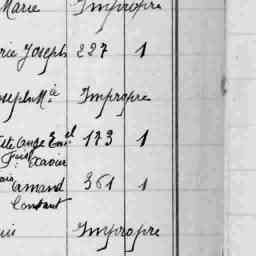 Marie Impropre
rie Joseph 227 1
Joseph Mᵉ Impropre
ste Ange Emᵉˡ 173 1
Fᵒⁱˢ Xavier
Amand 361 1
Constant
Impropre